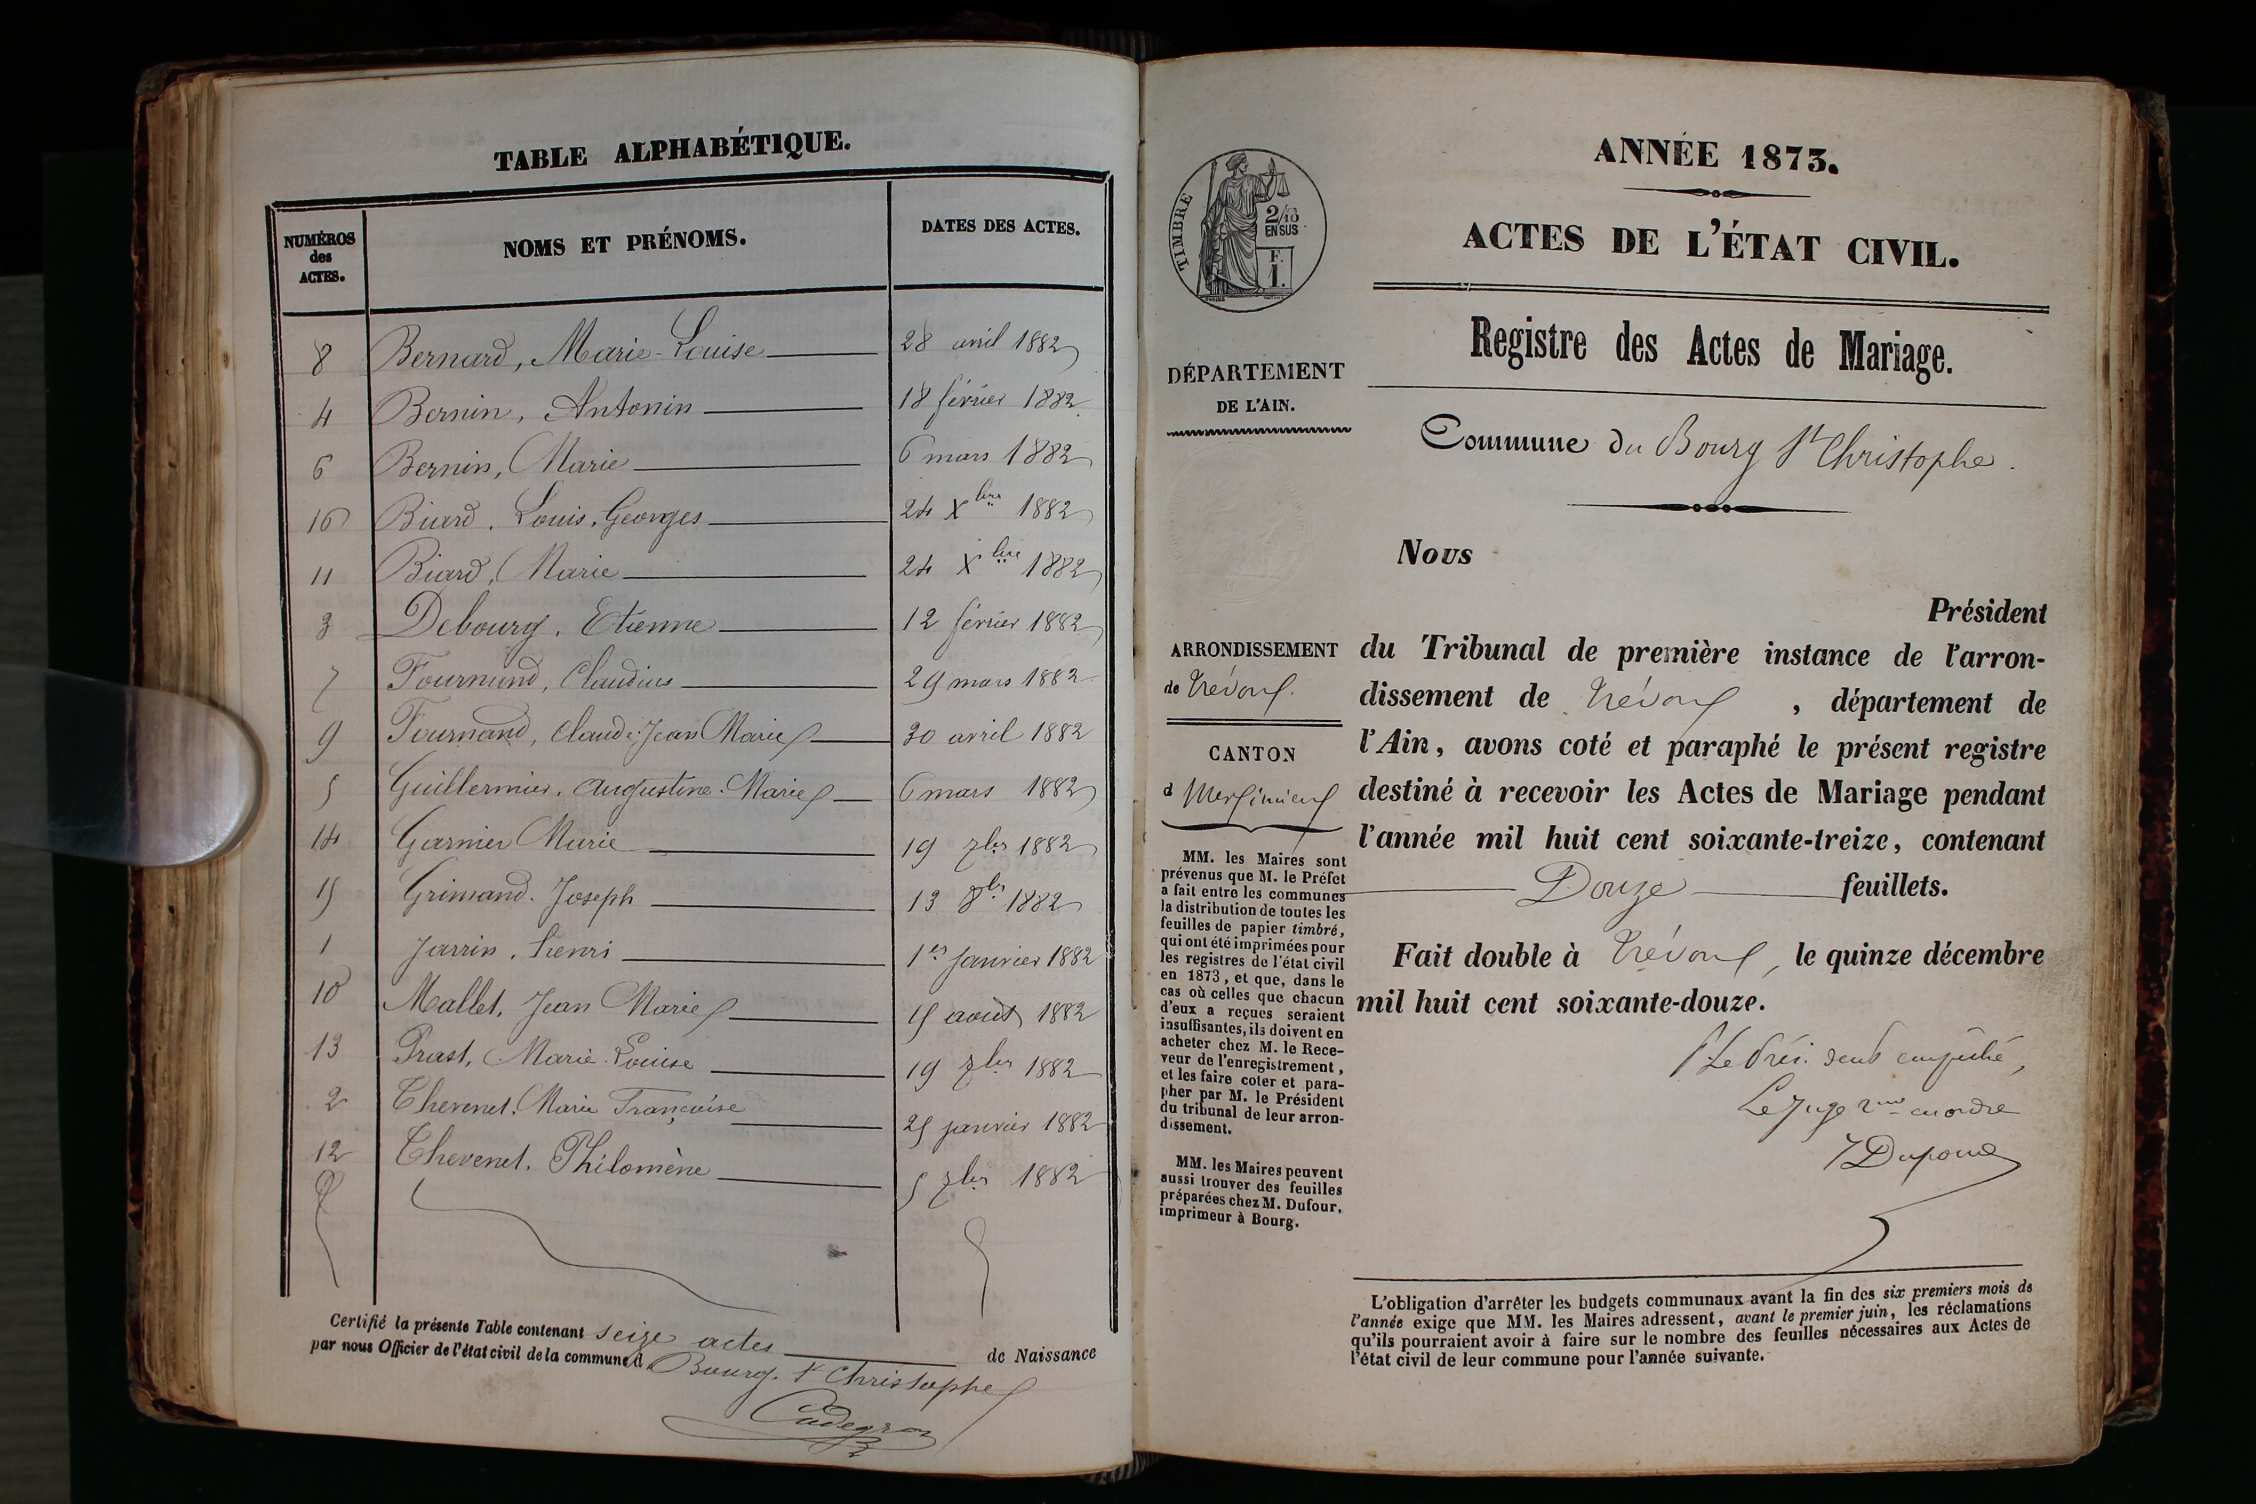 TABLE ALPHABÉTIQUE.
NUMÉROS des ACTES. NOMS ET PRÉNOMS. DATES DES ACTES.
8 Bernard, Marie-Louise 28 avril 1882
4 Bernin, Antonin 18 février 1882
6 Bernin, Marie 6 mars 1882
16 Biard, Louis, Georges 24 Xbre 1882
11 Biard, Marie 24 Xbre 1882
3 Debourg, Etienne 12 février 1882
7 Fournand, Claudius 29 mars 1882
9 Fournand, Claude Jean Marie 30 avril 1882
5 Guillermier, Augustine Marie 6 mars 1882
14 Garnier Marie 19 7bre 1882
15 Grimand. Joseph 13 8bre 1882
1 Jarrin, henri 1er janvier 1882
10 Mallet, Jean Marie 15 août 1882
13 Prast, Marie-Louise 19 7bre 1882
2 Thevenet. Marie Françoise 25 janvier 1882
12 Thevenet. Philomène 5 7bre 1882
Certifié la présente Table contenant seize actes de Naissance
par nous Officier de l'état civil de la commune d Bourg St Christophe
ANNÉE 1873.
ACTES DE L'ÉTAT CIVIL.
Registre des Actes de Mariage.
Commune du Bourg St Christophe.
TIMBRE
2/10
EN SUS
F.
1.
DÉPARTEMENT
DE L'AIN.
ARRONDISSEMENT
de Trévoux.
CANTON
d Meximieux
MM. les Maires sont
prévenus que M. le Préfet
a fait entre les communes
la distribution de toutes les
feuilles de papier timbré,
qui ont été imprimées pour
les registres de l'état civil
en 1873, et que, dans le
cas où celles que chacun
d'eux a reçues seraient
insuffisantes, ils doivent en
acheter chez M. le Rece-
veur de l'enregistrement,
et les faire coter et para-
pher par M. le Président
du tribunal de leur arron-
dissement.
MM. les Maires peuvent
aussi trouver des feuilles
préparées chez M. Dufour,
imprimeur à Bourg.
Nous
Président
du Tribunal de première instance de l'arron-
dissement de Trévoux, département de
l'Ain, avons coté et paraphé le présent registre
destiné à recevoir les Actes de Mariage pendant
l'année mil huit cent soixante-treize, contenant
Douze feuillets.
Fait double à Trévoux, le quinze décembre
mil huit cent soixante-douze.
Le Prési. dent empêché,
Le Juge 2me en ordre
L'obligation d'arrêter les budgets communaux avant la fin des six premiers mois de
l'année exige que MM. les Maires adressent, avant le premier juin, les réclamations
qu'ils pourraient avoir à faire sur le nombre des feuilles nécessaires aux Actes de
l'état civil de leur commune pour l'année suivante.